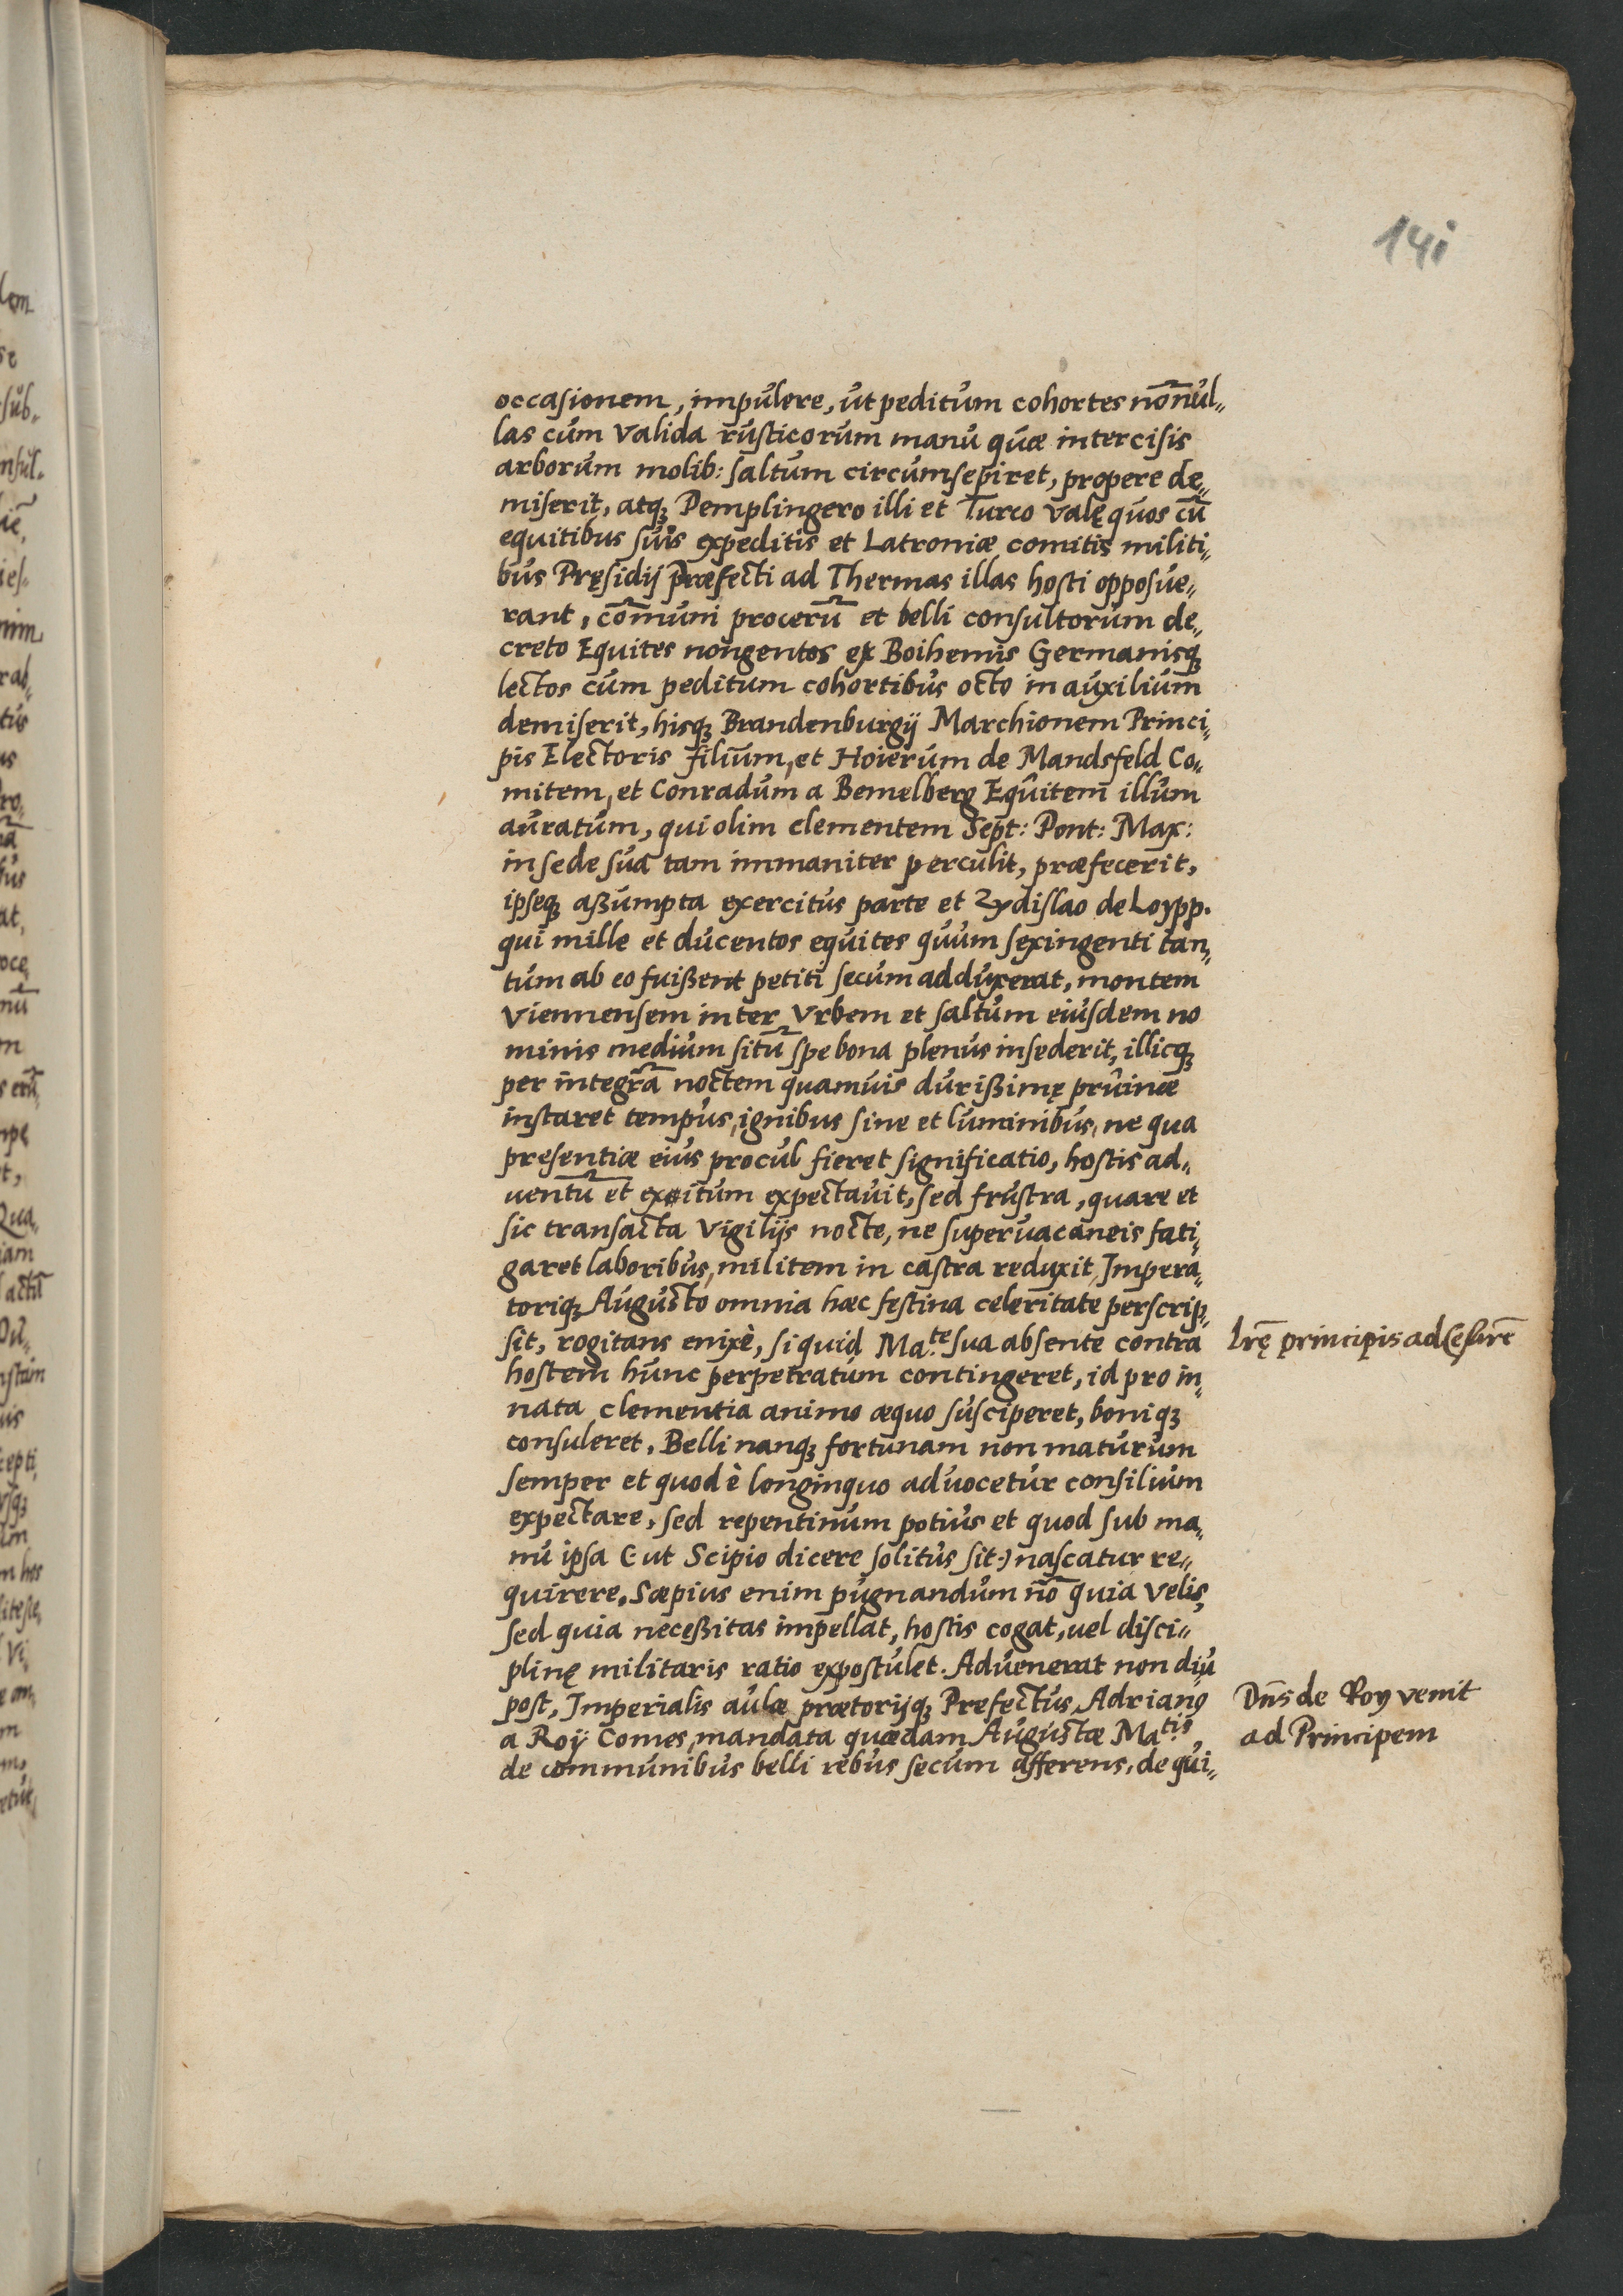 141
occasionem, impulere, ut peditum cohortes no͞nul„
las cum valida rusticorum manu quæ intercisis
arborum molib: saltum circumsepiret, propere de„
miserit, atqꝫ Pemplingero illi et Turco valę quos cū
equitibus suis expeditis et Latroniæ comitis militi„
bus Pręsidij Præfecti ad Thermas illas hosti opposue„
rant, co͞muni procerū et belli consultorum de„
creto Equites nongentos ex Boihemis Germanisqꝫ
lectos cum peditum cohortibus octo in auxilium
demiserit, hisqꝫ Brandenburgij Marchionem Princi„
pis Electoris filium, et Hoierum de Mandsfeld Co„
mitem, et Conradum a Bemelberg Equitem illum
auratum, qui olim clementem Sept: Pont: Max:
in sede sua tam immaniter perculit, præfecerit,
ipseqꝫ aßumpta exercitus parte et Zdislao de Loypp.
qui mille et ducentos equites quum sexingenti tan„
tum ab eo fuißent petiti secum adduxerat, montem
Viennensem inter Vrbem et saltum eiusdem no
minis medium sitū spe bona plenus insederit, illicqꝫ
per integrā noctem quamuis durißimę pruinæ
instaret tempus, ignibus sine et luminibus, ne qua
presentiæ eius procul fieret significatio, hostis ad„
uentū et exitum expectauit, sed frustra, quare et
sic transacta vigilijs nocte, ne superuacaneis fati„
garet laboribus, militem in castra reduxit, Impera„
toriqꝫ Augusto omnia hæc festina celeritate perscrip„
sit, rogitans enixè, si quid Ma.te sua absente contra
hostem hunc perpetratum contingeret, id pro in„
nata clementia animo æquo susciperet, boniqꝫ
consuleret, Belli nanqꝫ fortunam non maturum
semper et quod è longinquo aduocetur consilium
expectare, sed repentinum potius et quod sub ma„
nu ipsa (: ut Scipio dicere solitus sit:) nascatur re„
quirere. Sæpius enim pugnandum nō quia velis,
sed quia neceßitas impellat, hostis cogat, uel disci„
plinę militaris ratio expostulet. Aduenerat non diu
post, Imperialis aulæ prætorijqꝫ Prefectus, Adrianꝰ
a Roij Comes, mandata quædam Augustæ Ma.tis
de communibus belli rebus secum afferens, de qui„
Lr̄ę principis ad Cęsarē
Dn̄s de Roy venit
ad Principem